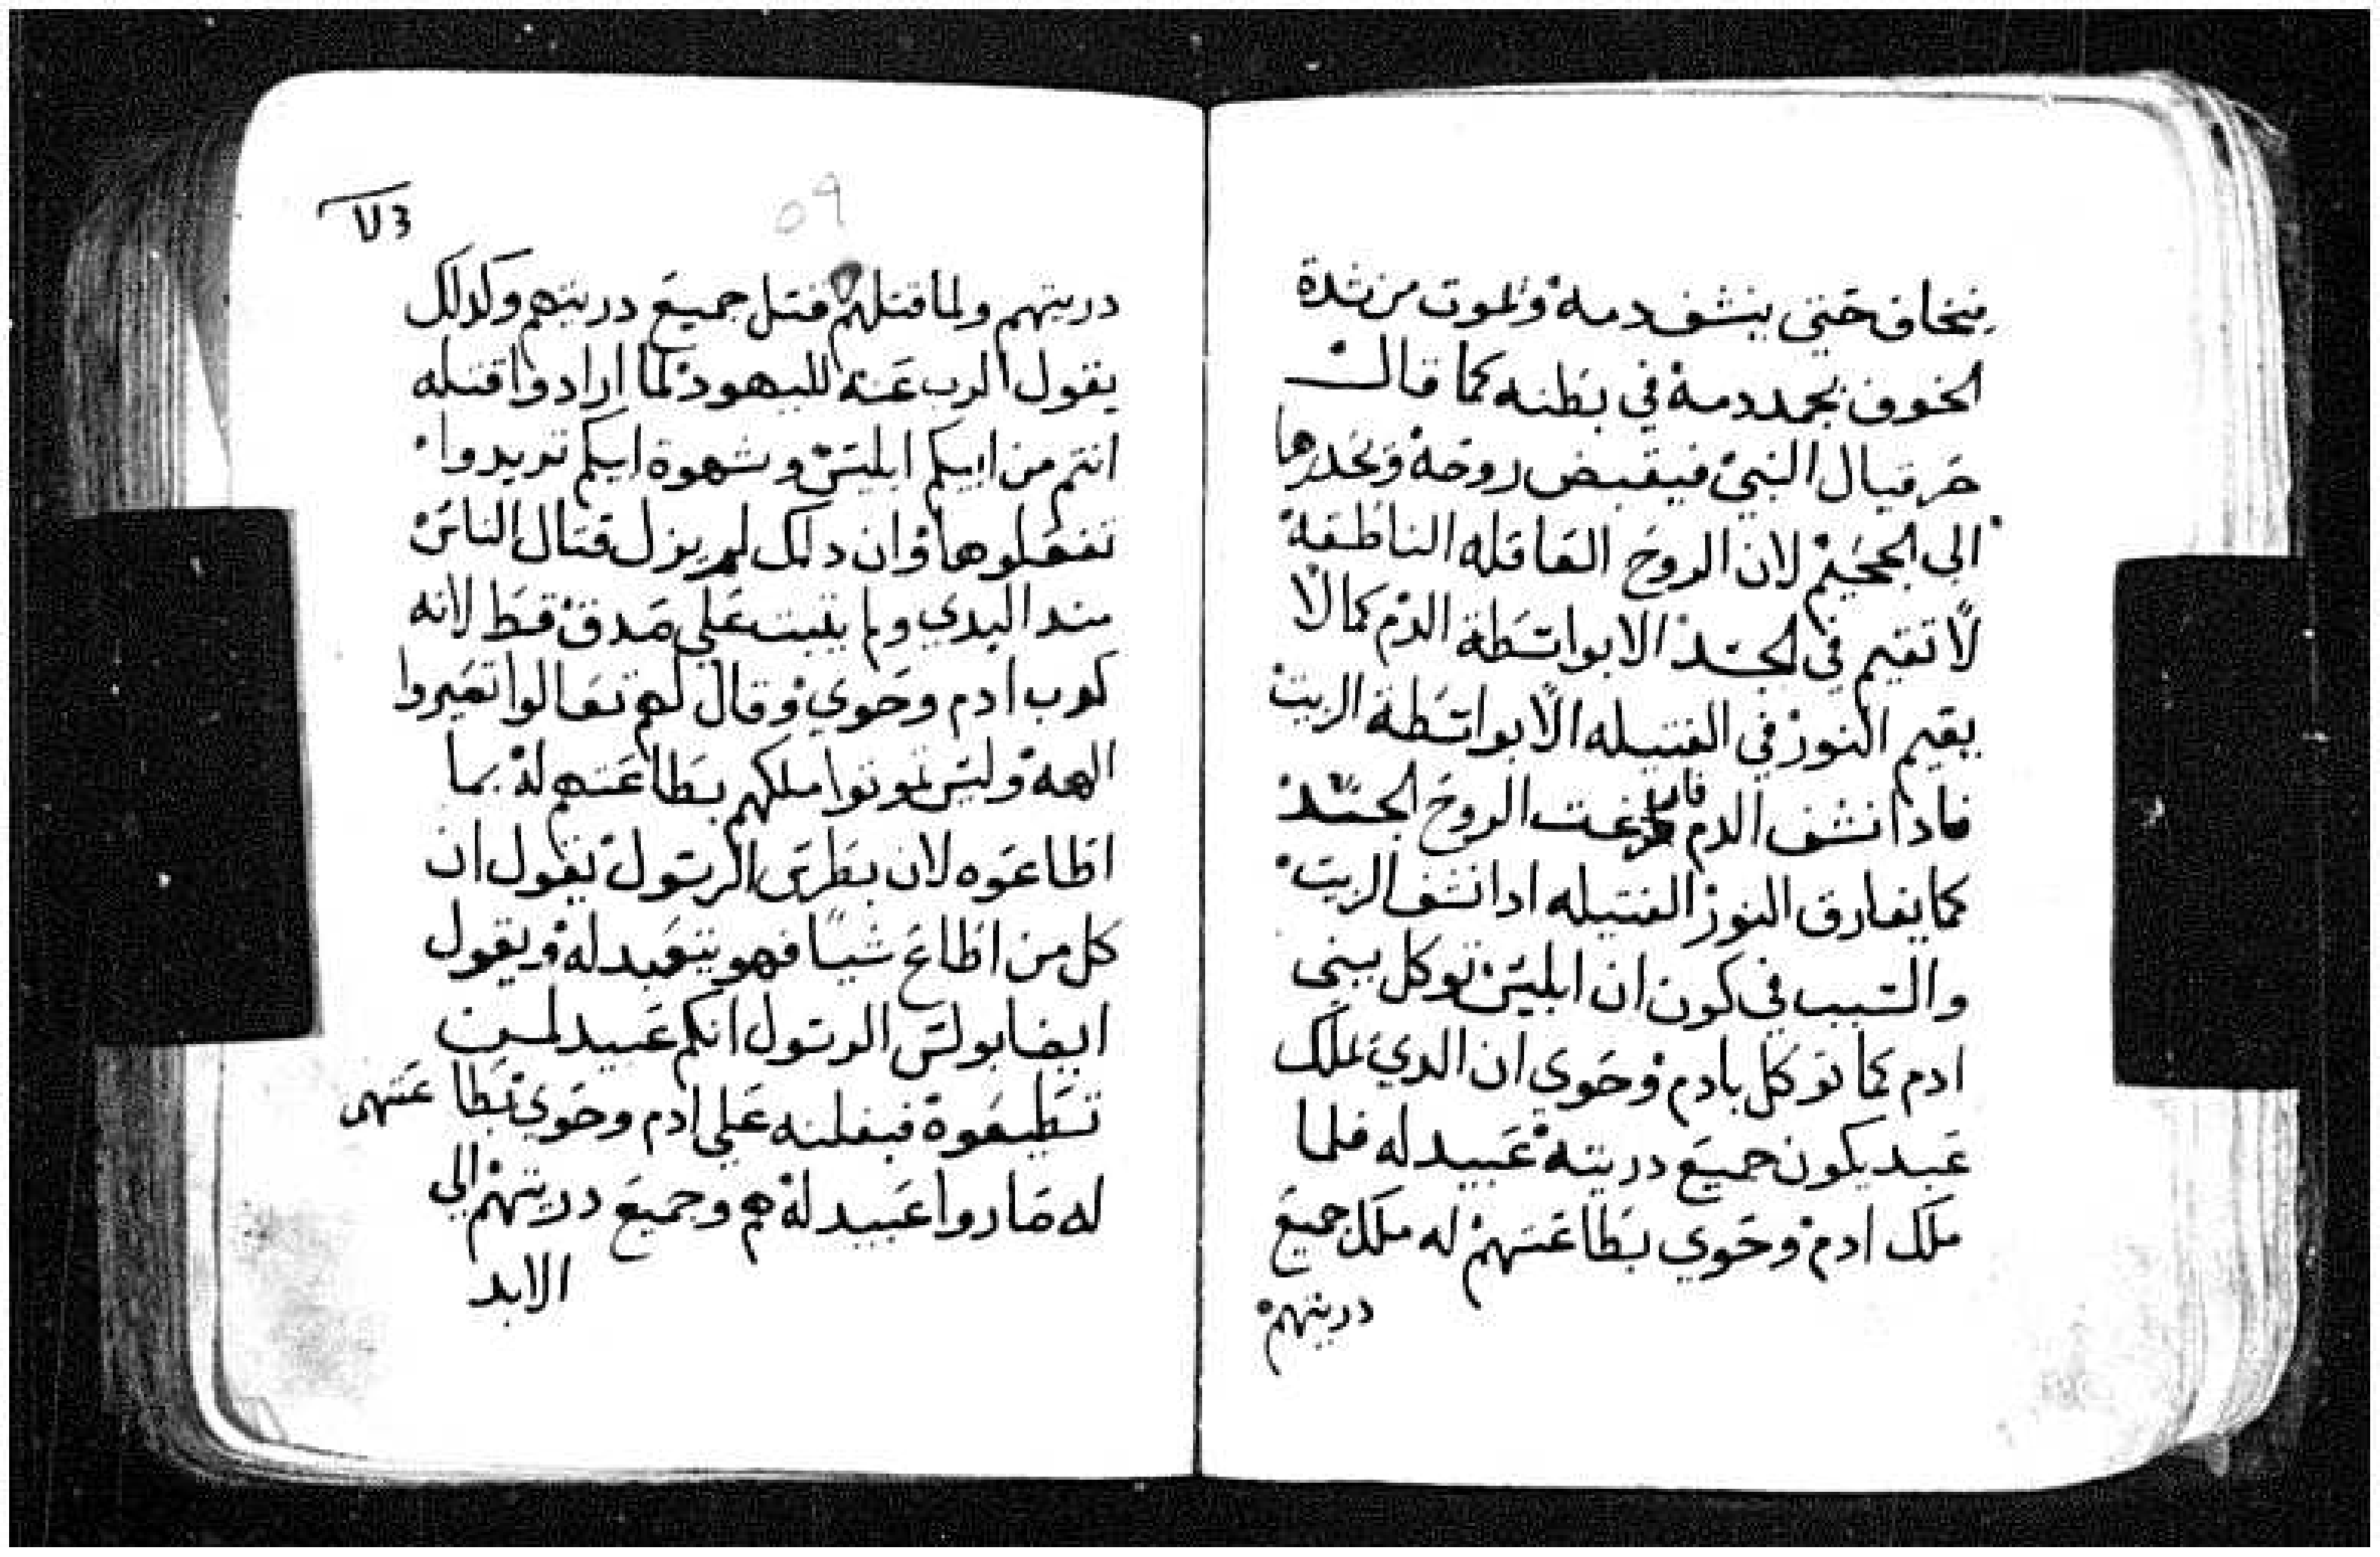 فيخاف حتي ينشف دمه والموت من شدة
الخوف يجمد دمه في بطنه كما قال
حزقيال النبي فيقبض روحه ويحدرها
الى الجحيم لان الروح العاقله الناطقة
لا تقيم في الجسد الا بواسطة الدم كما لا
يقيم النور في الفتيله الا بواسطة الزيت
فادا نشف الدم فارغت الروح الجسد
كما يفارق النور الفتيله ادا نشف الزيت
والسبب في كون ان ابليس توكل ببني
ادم كما توكل بادم وحوى ان الدي يملك
عبد يكون جميع دريته عبيد له فلما
ملك ادم وحوي بطاعتهم له ملك جميع
دريتهم
59
دريتهم ولما قتلهم قتل جميع دريتهم ولدلك
يقول الرب عنه لليهود لما ارادوا قتله
انتم من ابيكم ابليس وشهوة ابيكم تريدوا
تفعلوها وان دلك لم يزل قتال الناس
مند البدي ولم يتبت علي صدق قط لانه
كدب ادم وحوي وقال لهم تعالوا تصيروا
الهه وليس تموتوا ملكهم بطاعتهم له بما
اطاعوه لان بطرس الرسول يقول ان
كل من اطاع شيا فهو يتعبد له ويقول
ايضا بولس الرسول انكم عبيد لمن
تطيعوة فبغلبته علي ادم وحوي بطاعتهم
له صاروا عبيد له هم وجميع دريتهم الي
الابد